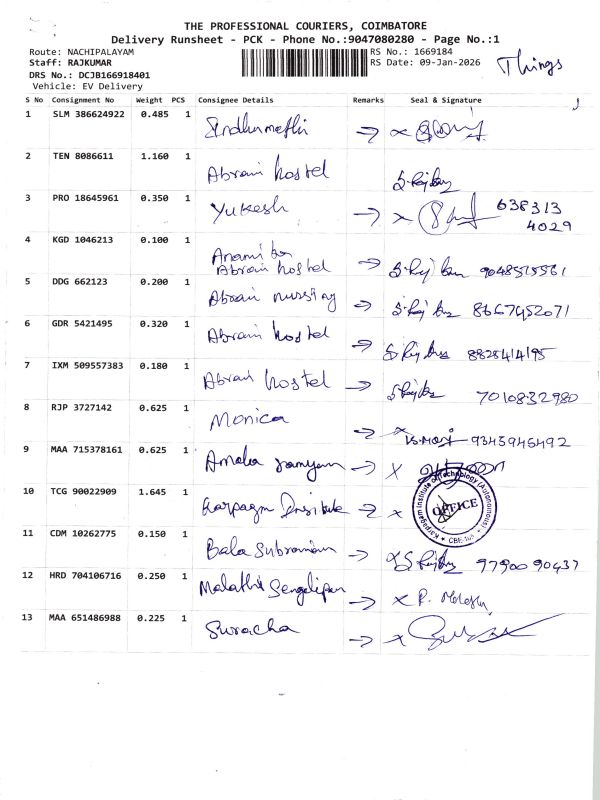 THE PROFESSIONAL COURIERS, COIMBATORE
Delivery Runsheet - PCK - Phone No.:9047080280 - Page No.:1
Route: NACHIPALAYAM RS No.: 1669184
Staff: RAJKUMAR RS Date: 09-Jan-2026 Things
DRS No.: DCJB166918401
Vehicle: EV Delivery
S No Consignment No Weight PCS Consignee Details Remarks Seal & Signature
1 SLM 386624922 0.485 1
2 TEN 8086611 1.160 1 Abrami hostel
3 PRO 18645961 0.350 1 Yukesh → x 638313
4029
4 KGD 1046213 0.100 1
Abrami hostel →
5 DDG 662123 0.200 1 Abrami nursing → 8667952071
6 GDR 5421495 0.320 1 Abrami hostel → 8825414195
7 IXM 509557383 0.180 1 Abrami hostel → 7010832980
8 RJP 3727142 0.625 1 Monica → x 9345945492
9 MAA 715378161 0.625 1 → x
10 TCG 90022909 1.645 1 → x
Karpagam Institute of Technology (Autonomous)
OFFICE
11 CDM 10262775 0.150 1 Bala Subramani → 97900 90437
12 HRD 704106716 0.250 1 Malathi → x
13 MAA 651486988 0.225 1 Suracha → x